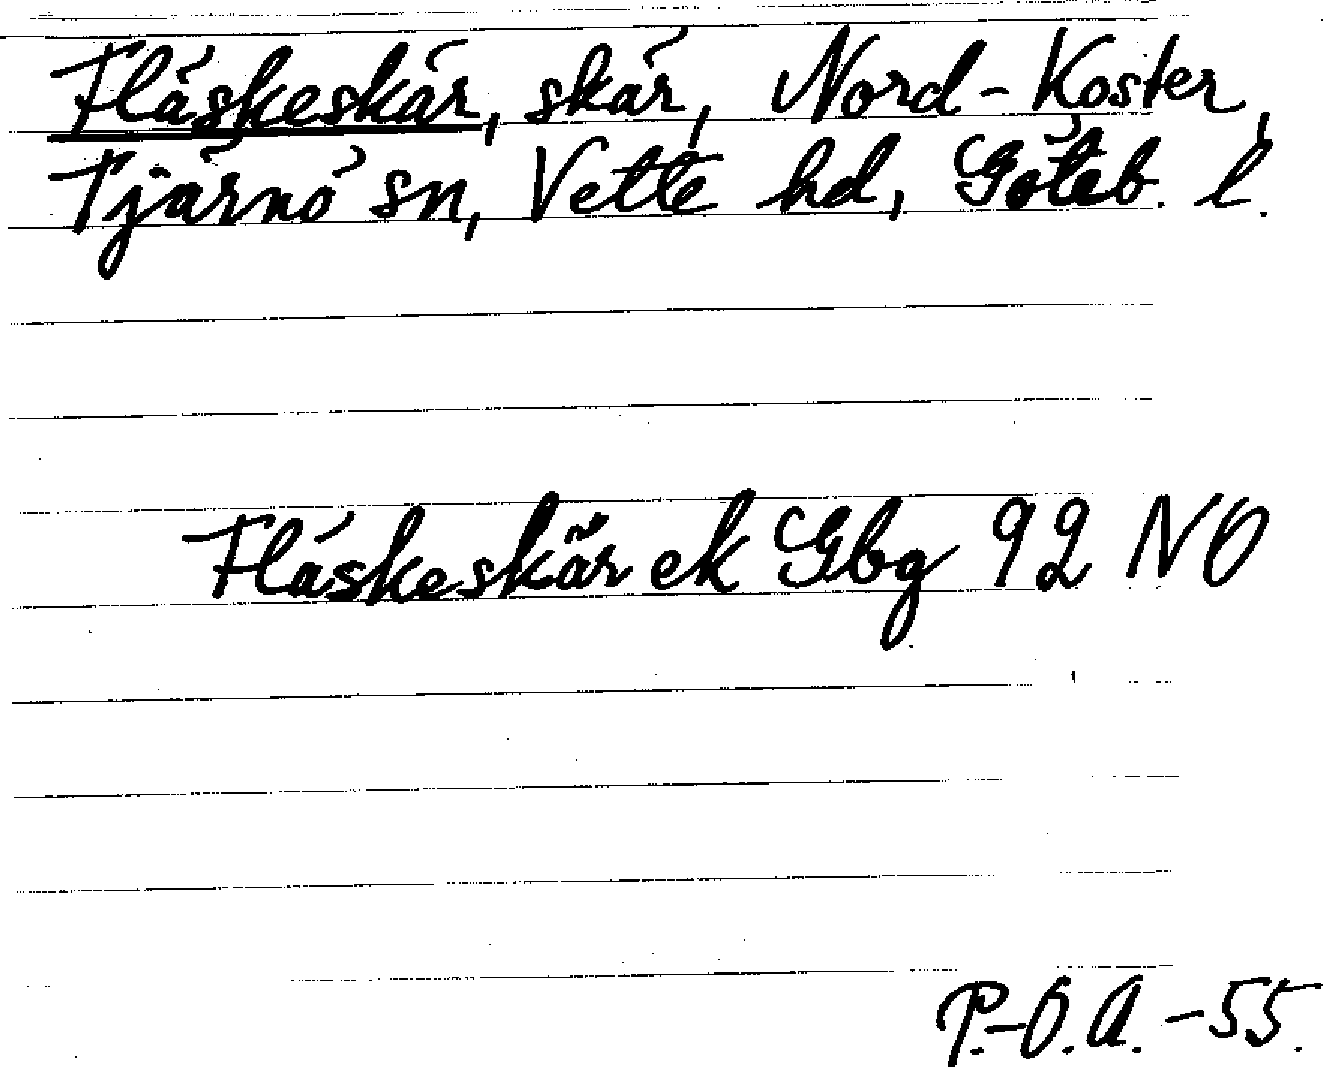 Fläskeskär, skär, Nord-Koster,
Tjärnö sn, Vette hd, Göteb. l.
Fläskeskär ek Gbg 92 NO
P.-O.A. -55.